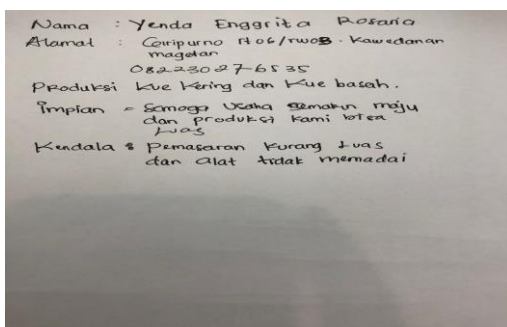 Nama : Yenda Enggrita Rosaria
Alamat : Giripurno rt06/rw03 - Kawedanan
magetan
082230276535
Produksi Kue Kering dan Kue basah.
Impian = Semoga Usaha semakin maju
dan produksi kami bisa
Luas
Kendala : Pemasaran Kurang Luas
dan alat tidak memadai